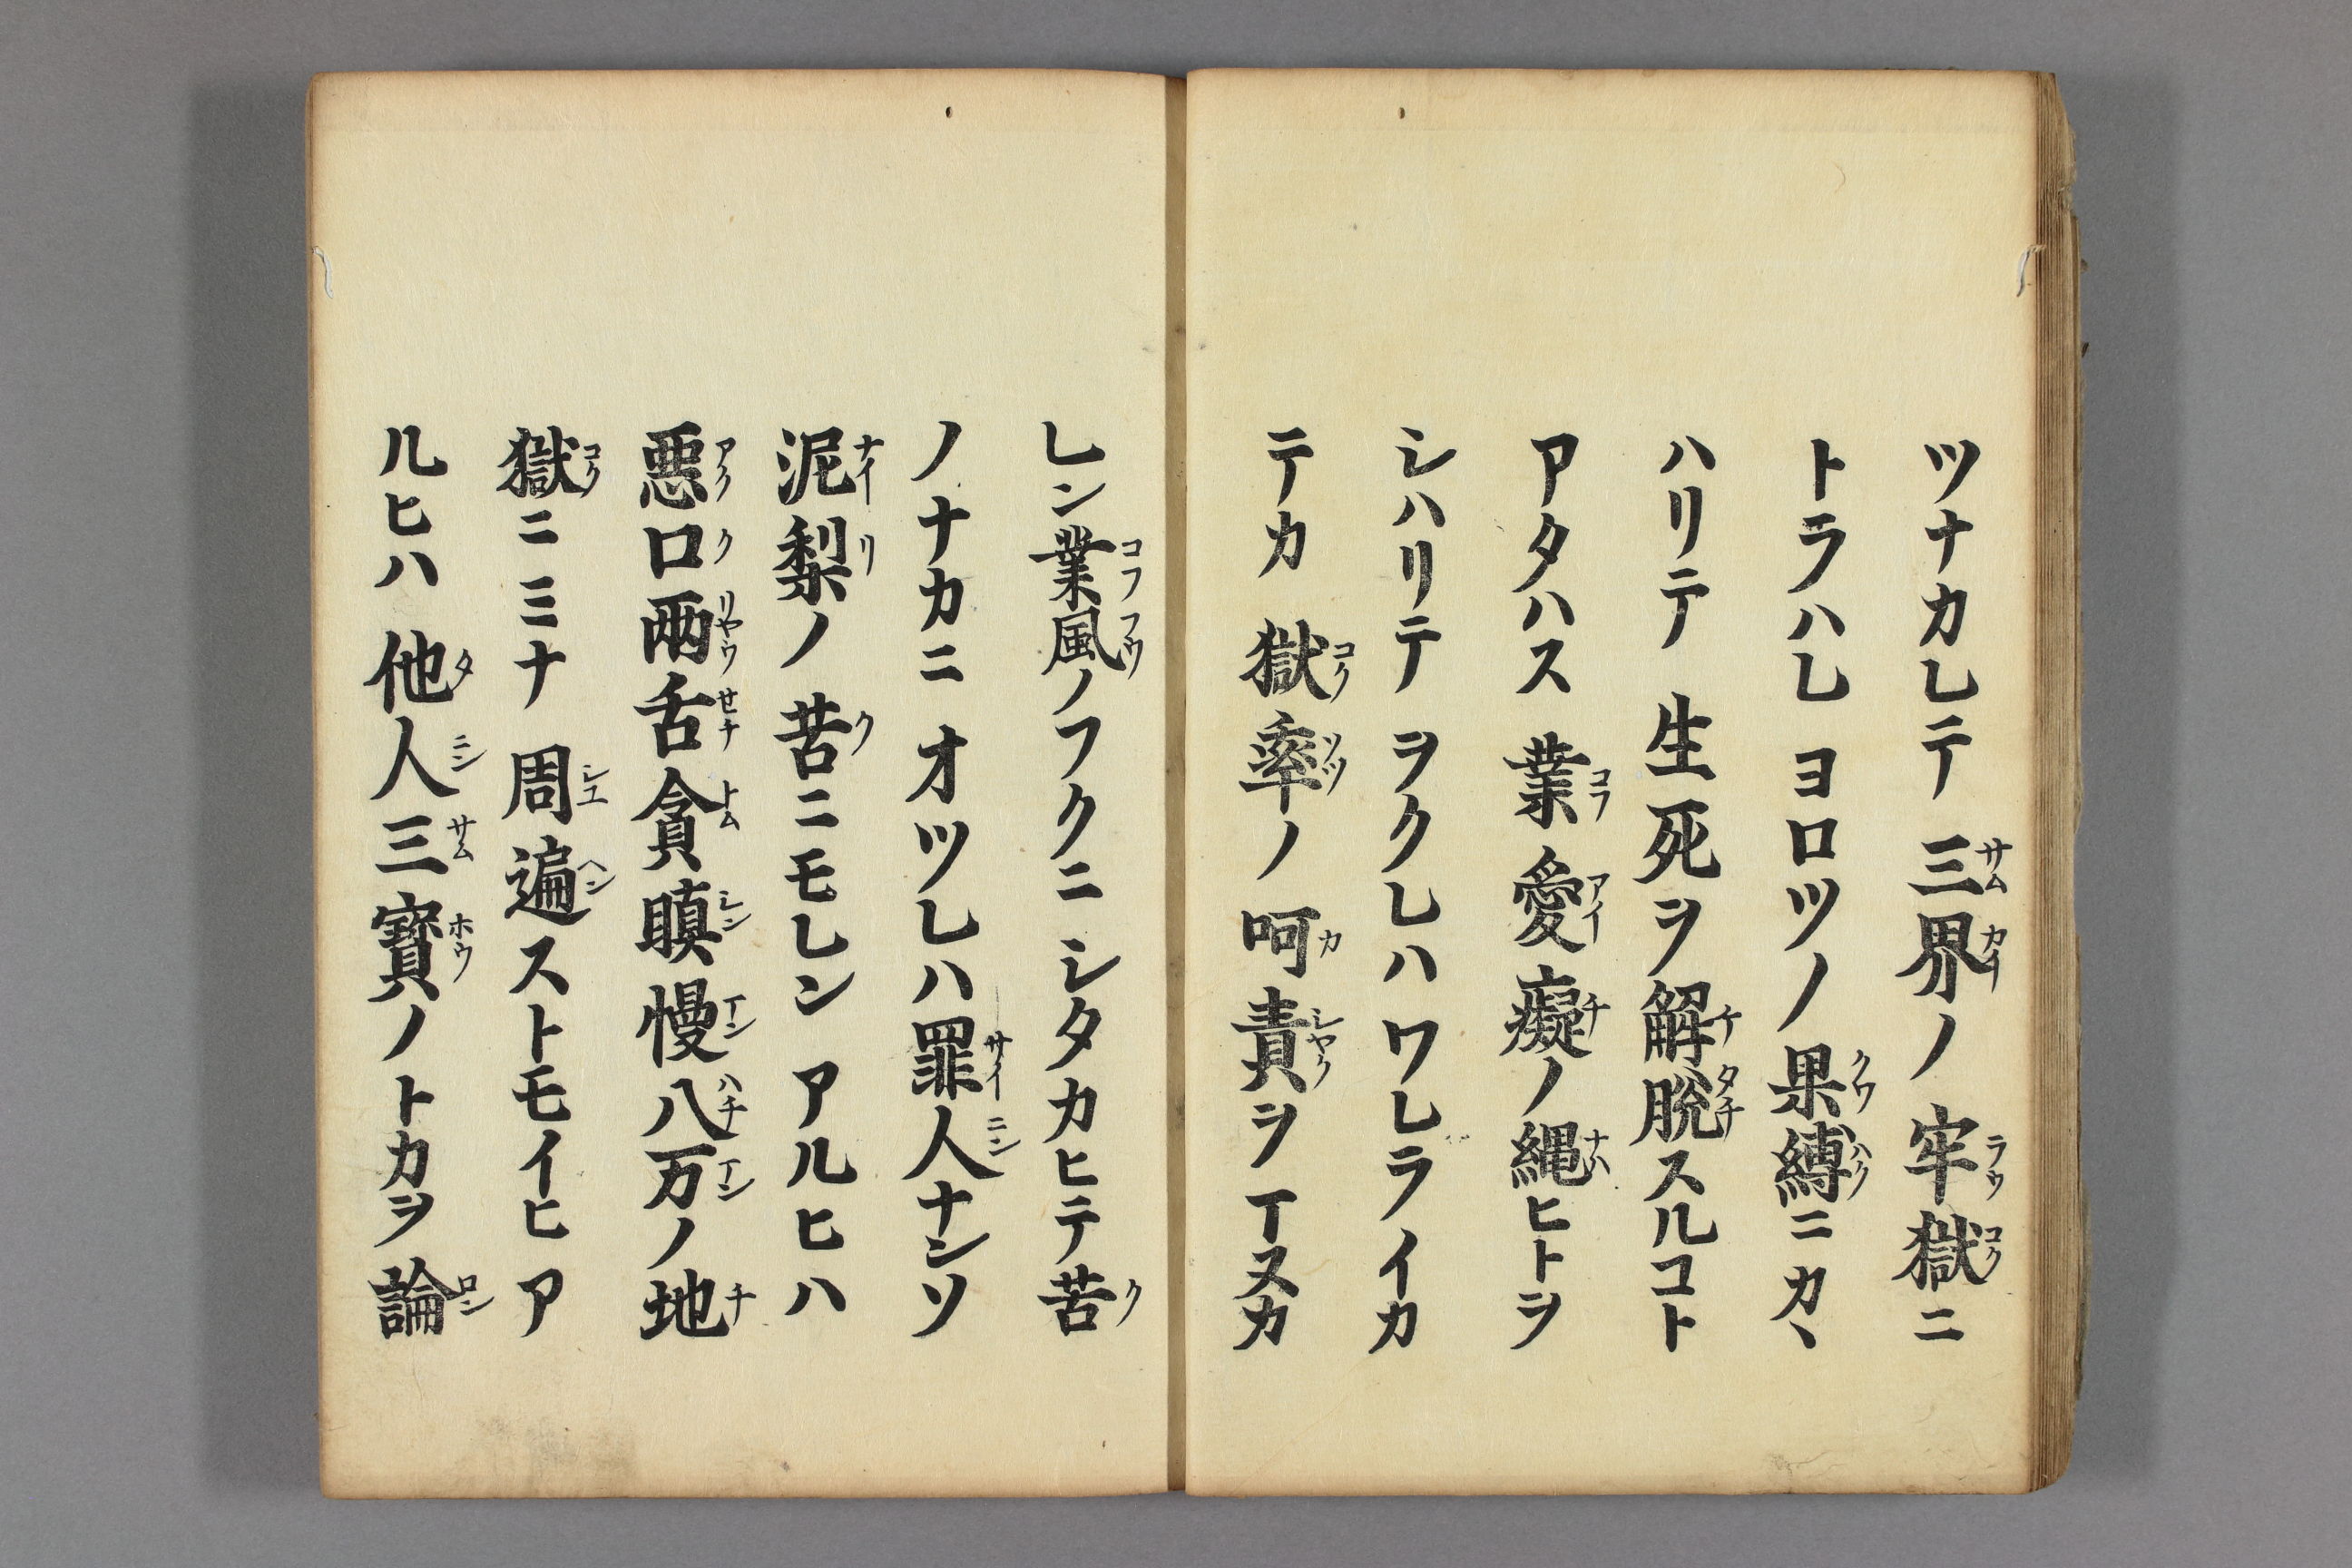 ツナカレテ三界ノ牢獄ニ
トラハレヨロツノ果縛ニカヽ
ハリテ生死ヲ解脱スルコト
アタハス業愛癡ノ縄ヒトヲ
シハリテヲクレハワレライカ
テカ獄率ノ呵責ヲイヌカ
レン業風ノフクニシタカヒテ苦
ノナカニオツレハ罪人ナンソ
泥梨ノ苦ニモレンアルヒハ
悪口兩舌貪瞋慢八万ノ地
獄ニミナ周遍ストモイヒア
ルヒハ他人三寳ノトカヲ論